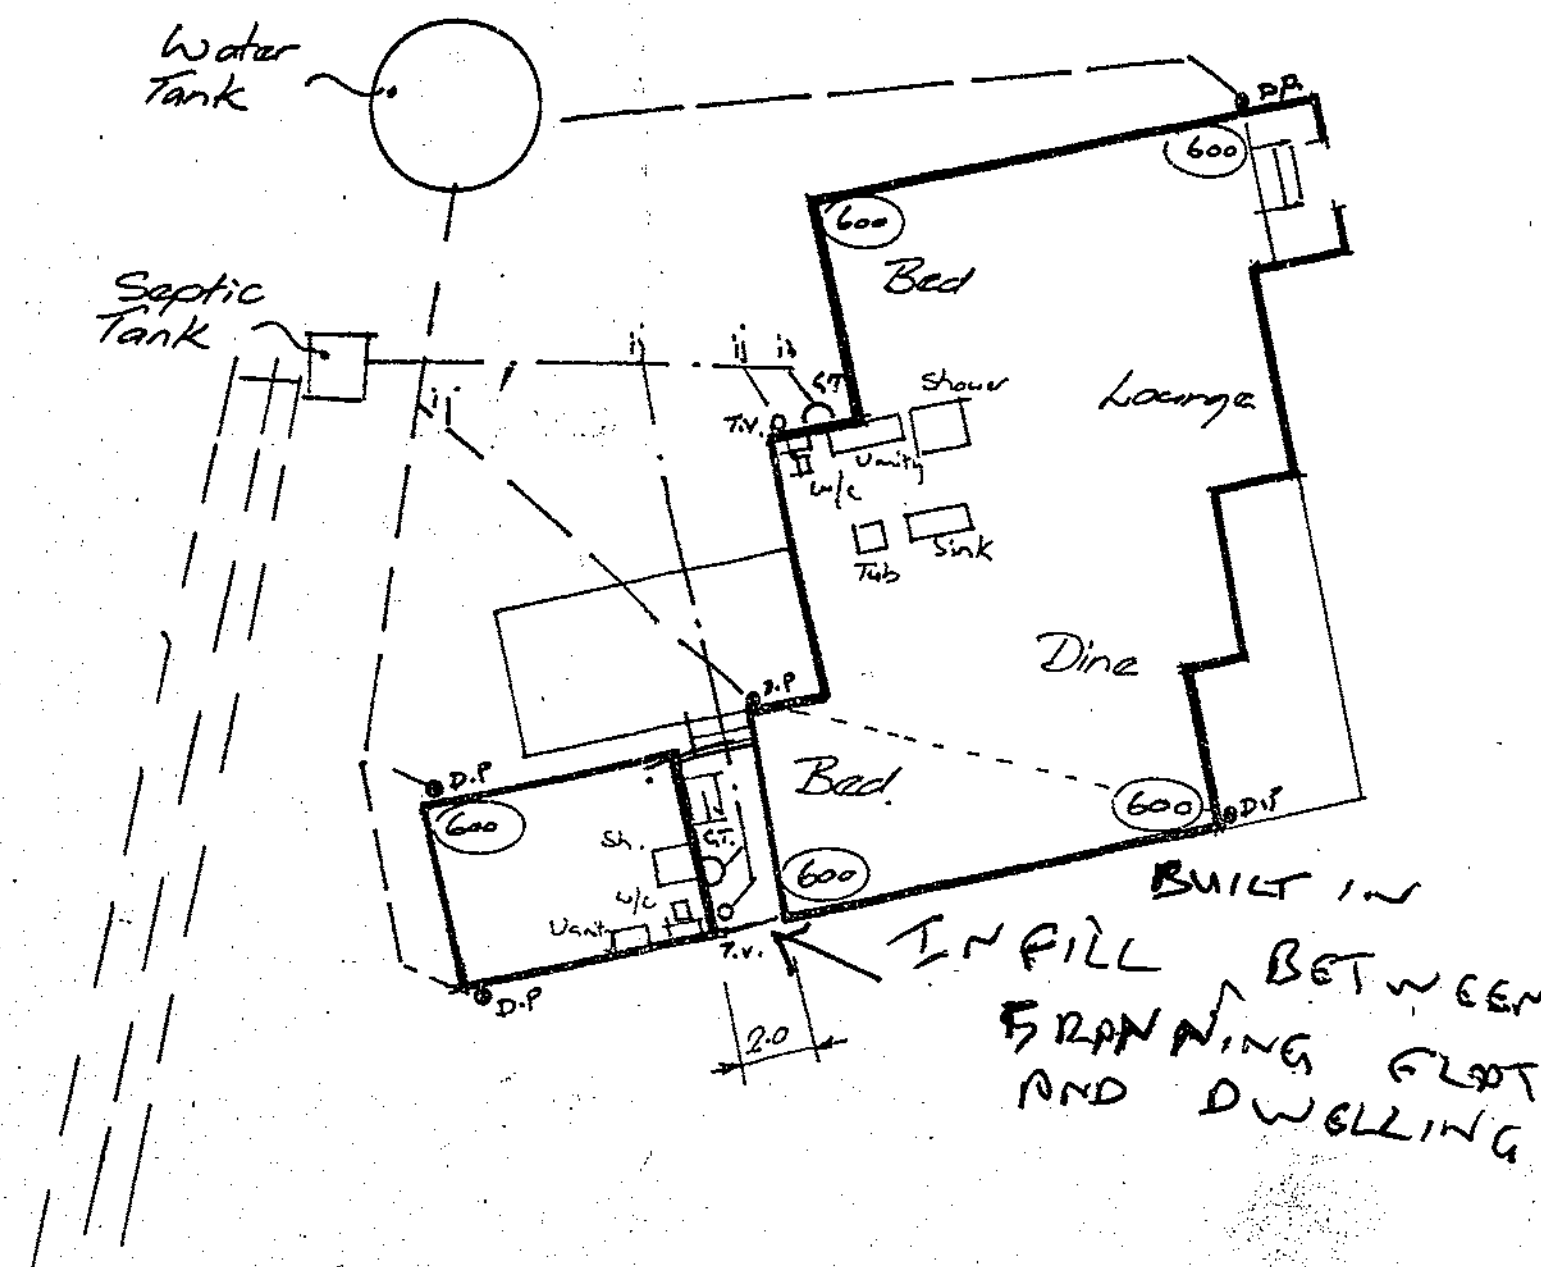 Water
Tank
D.P.
600
600
Bed
Septic
Tank
ij
ij
ij
ij
G.T.
Shower
Lounge
T.V.
Vanity
W/C
Tub
Sink
Dine
D.P
D.P
Bed.
600
600
D.P
Sh.
G.T.
600
W/C
Vanity
T.V.
D.P
2.0
BUILT IN
INFILL BETWEEN
AND DWELLING